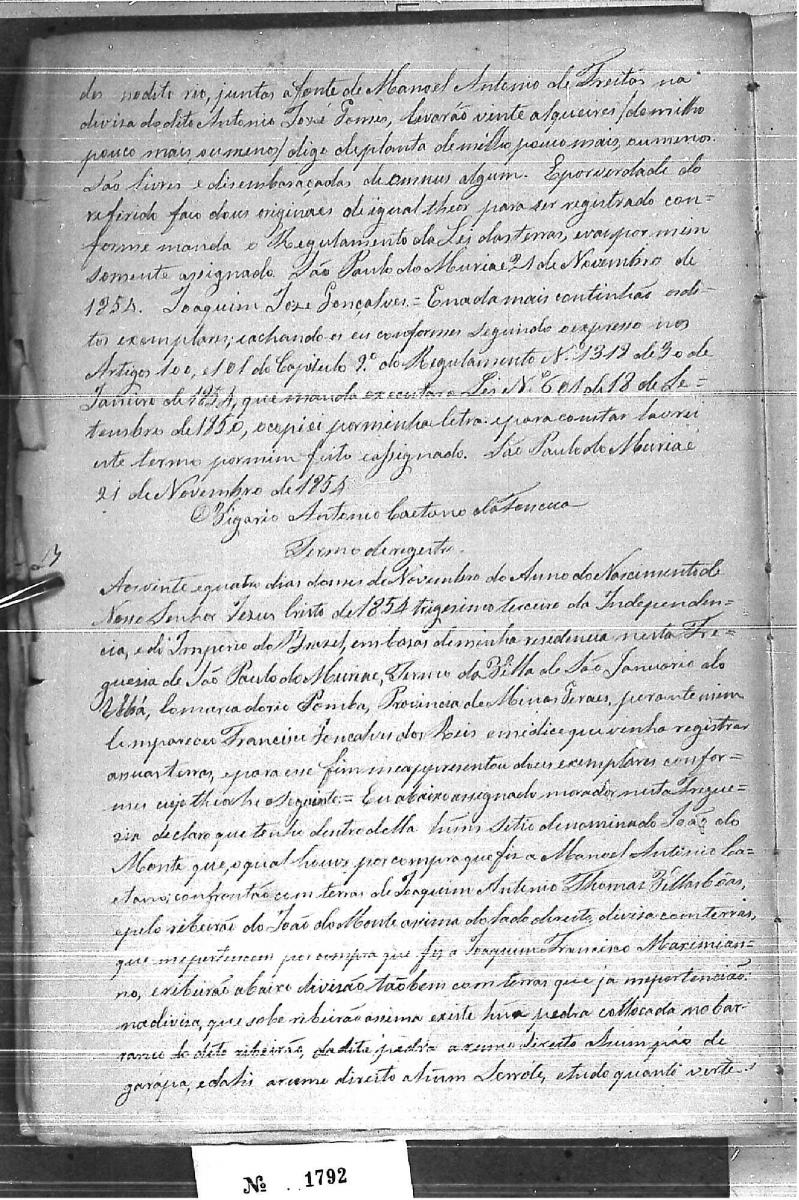 dos no dito rio, juntos a fonte de Manoel Antonio de Freitas na
divisa do dito Antonio José Gomes, levarão vinte alqueires /do milho
pouco mais, ou menos/ digo de planta de milho pouco mais, ou menos.
São livres e disembaraçadas de onnus algum. E por verdade do
referido faço dous originaes de igual theor para ser registrado con-
forme manda o Regulamento da Lei das terras, e vai por mim
somente assignado. São Paulo do Muriae 21 de Novembro de
1854. Joaquim Jose Gonçalves = E nada mais continhão os di-
tos exemplares; e achando-os eu conformes segundo o expresso nos
Artigos 100, e 101 do Capitulo 9º do Regulamento Nº 1318 de 30 de
Janeiro de 1854, que manda executar a Lei Nº 601 de 18 de Se-
tembro de 1850, o copiei por minha letra: e para constar lavrei
este termo por mim feito e assignado. São Paulo do Muriaé
21 de Novembro de 1854
O Vigario Antonio Caetano da Fonseca
Termo de registo.
13
Aos vinte e quatro dias do mes de Novembro do Anno do Nascimento de
Nosso Senhor Jezus Cristo de 1854 trigesimo terceiro da Independen-
cia, e do Imperio do Brazil, em casas de minha residencia nesta Fre-
guesia de São Paulo do Muriae, Termo da Villa de São Januario do
Ubá, Comarca do rio Pomba, Provincia de Minas Geraes, perante mim
Compareceu Francisco Gonçalves dos Reis e me dice que vinha registrar
as suas terras, e para esse fim me appresentou dous exemplares confor-
mes cujo theor he o seguinte = Eu abaixo assignado morador nesta Fregue-
zia declaro que tenho dentro della hum sitio denominado João do
Monte que, o qual houve por compra que fiz a Manoel Antonio Ca-
etano; confrontão com terras de Joaquim Antonio Thomaz Villasbôas,
e pelo ribeirão do João do Monte asima do lado direito, divisa com terras,
que me pertencem por compra que fiz a Joaquim Francisco Maximian-
no, e ribeirão abaixo divisão tãobem com terras que ja me pertencião:
na divisa, que sobe ribeirão assima existe hua pedra collocada no bar-
ranco do dito ribeirão, da dita pedra a rumo direito a hum páo de
garápa, e dahi a rumo direito a hum Serrote, e tudo quanto verte
Nº 1792